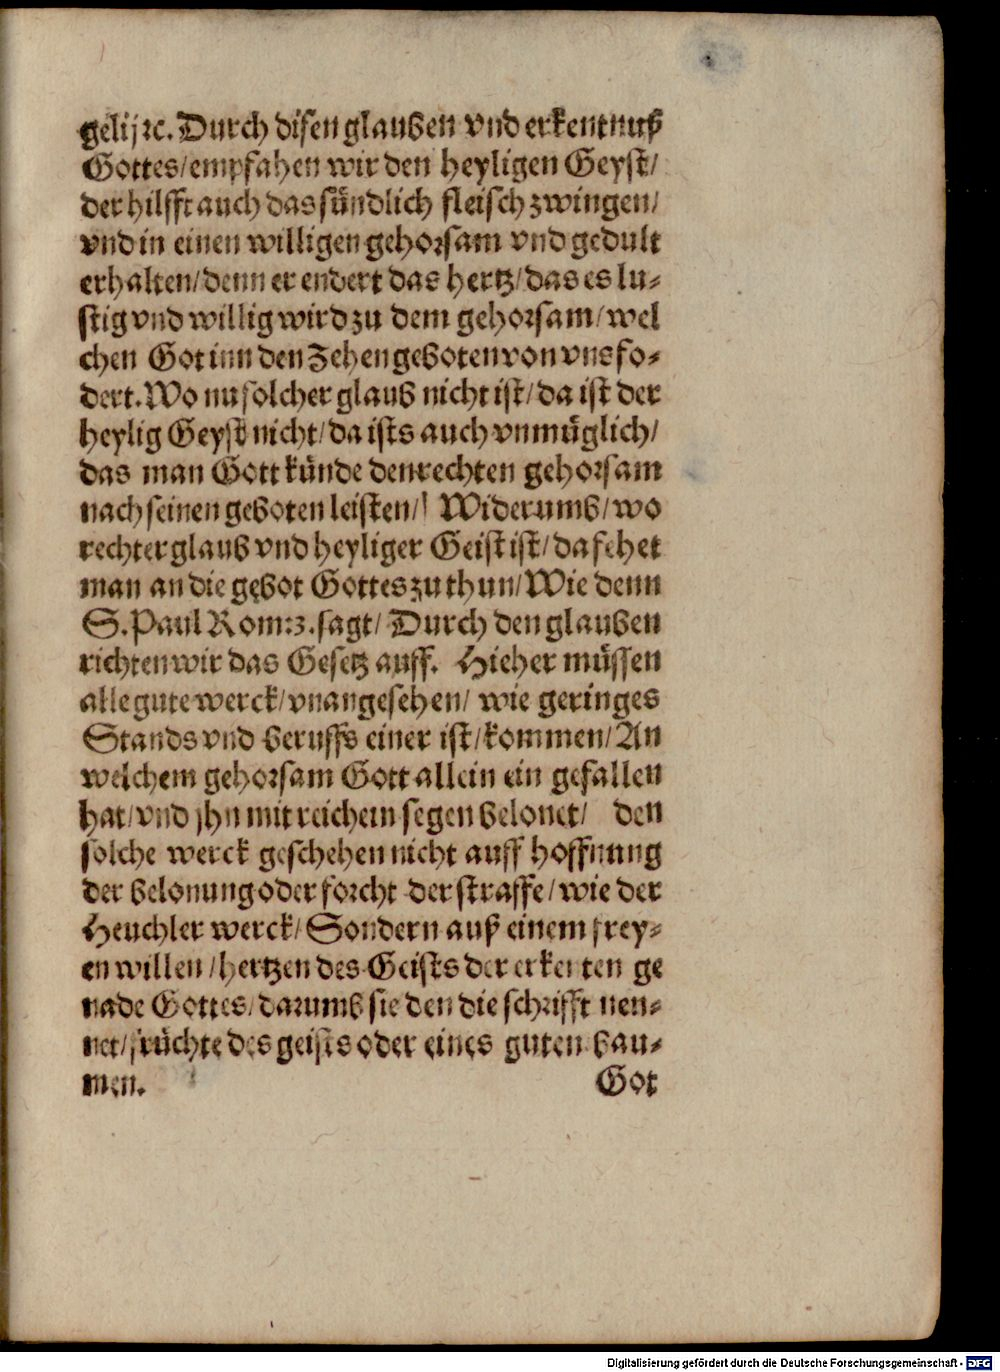 gelij ꝛc. Durch disen glauben vnd erkentnuß
Gottes/ empfahen wir den heyligen Geyst/
der hilfft auch das sündlich fleisch zwingen/
vnd in einen willigen gehorsam vnd gedult
erhalten/ denn er endert das hertz/ das es lu-
stig vnd willig wird zu dem gehorsam/ wel
chen Got inn den Zehen geboten von vns fo-
dert. Wo nu solcher glaub nicht ist/ da ist der
heylig Geyst nicht/ da ists auch vnmüglich/
das man Gott künde den rechten gehorsam
nach seinen geboten leisten/ Widerumb/ wo
rechter glaub vnd heyliger Geist ist/ da fehet
man an die gebot Gottes zu thun/ Wie denn
S. Paul Rom: 3. sagt/ Durch den glauben
richten wir das Gesetz auff. Hieher müssen
alle gute werck/ vnangesehen/ wie geringes
Stands vnd beruffs einer ist/ kommen/ An
welchem gehorsam Gott allein ein gefallen
hat/ vnd jhn mit reichem segen belonet/ den
solche werck geschehen nicht auff hoffnung
der belonung oder forcht der straffe/ wie der
Heuchler werck/ Sondern auß einem frey-
en willen/ hertzen des Geists der erkenten ge
nade Gottes/ darumb sie den die schrifft nen-
net/ früchte des geists oder eines guten bau-
men. Got
Digitalisierung gefördert durch die Deutsche Forschungsgemeinschaft - DFG